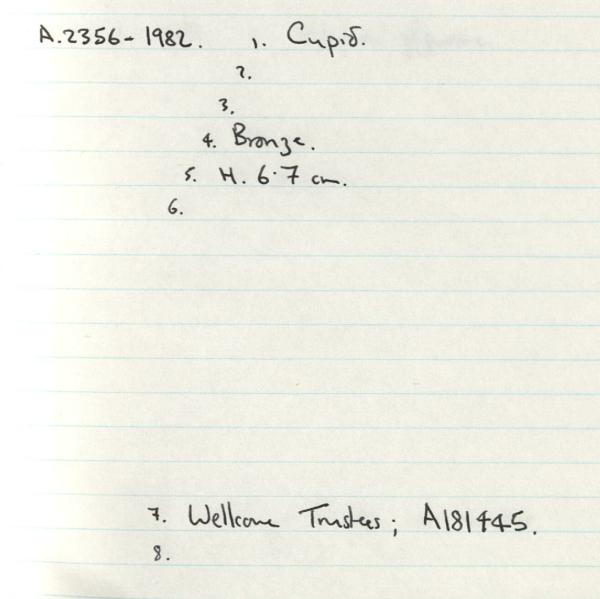 A.2356-1982. 1. Cupid.
2.
3.
4. Bronze.
5. H. 6.7 cm.
6.
7. Wellcome Trustees; A181445.
8.